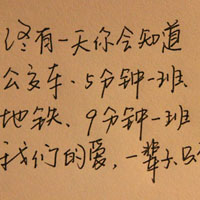 终有一天你会知道
公交车、5分钟一班
地铁、9分钟一班
我们的爱,一辈子只